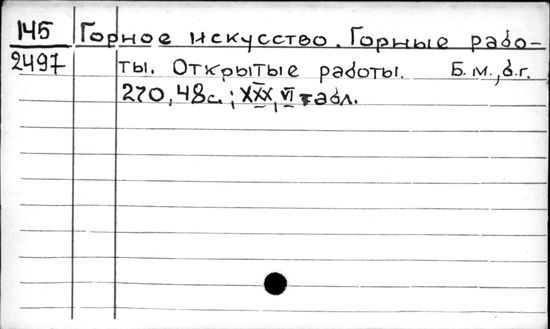 145 Горное искусство. Горные рабо-
2497 ты. Открытые работы. Б.м., б.г.
270, 48с.; XXX, VI табл.